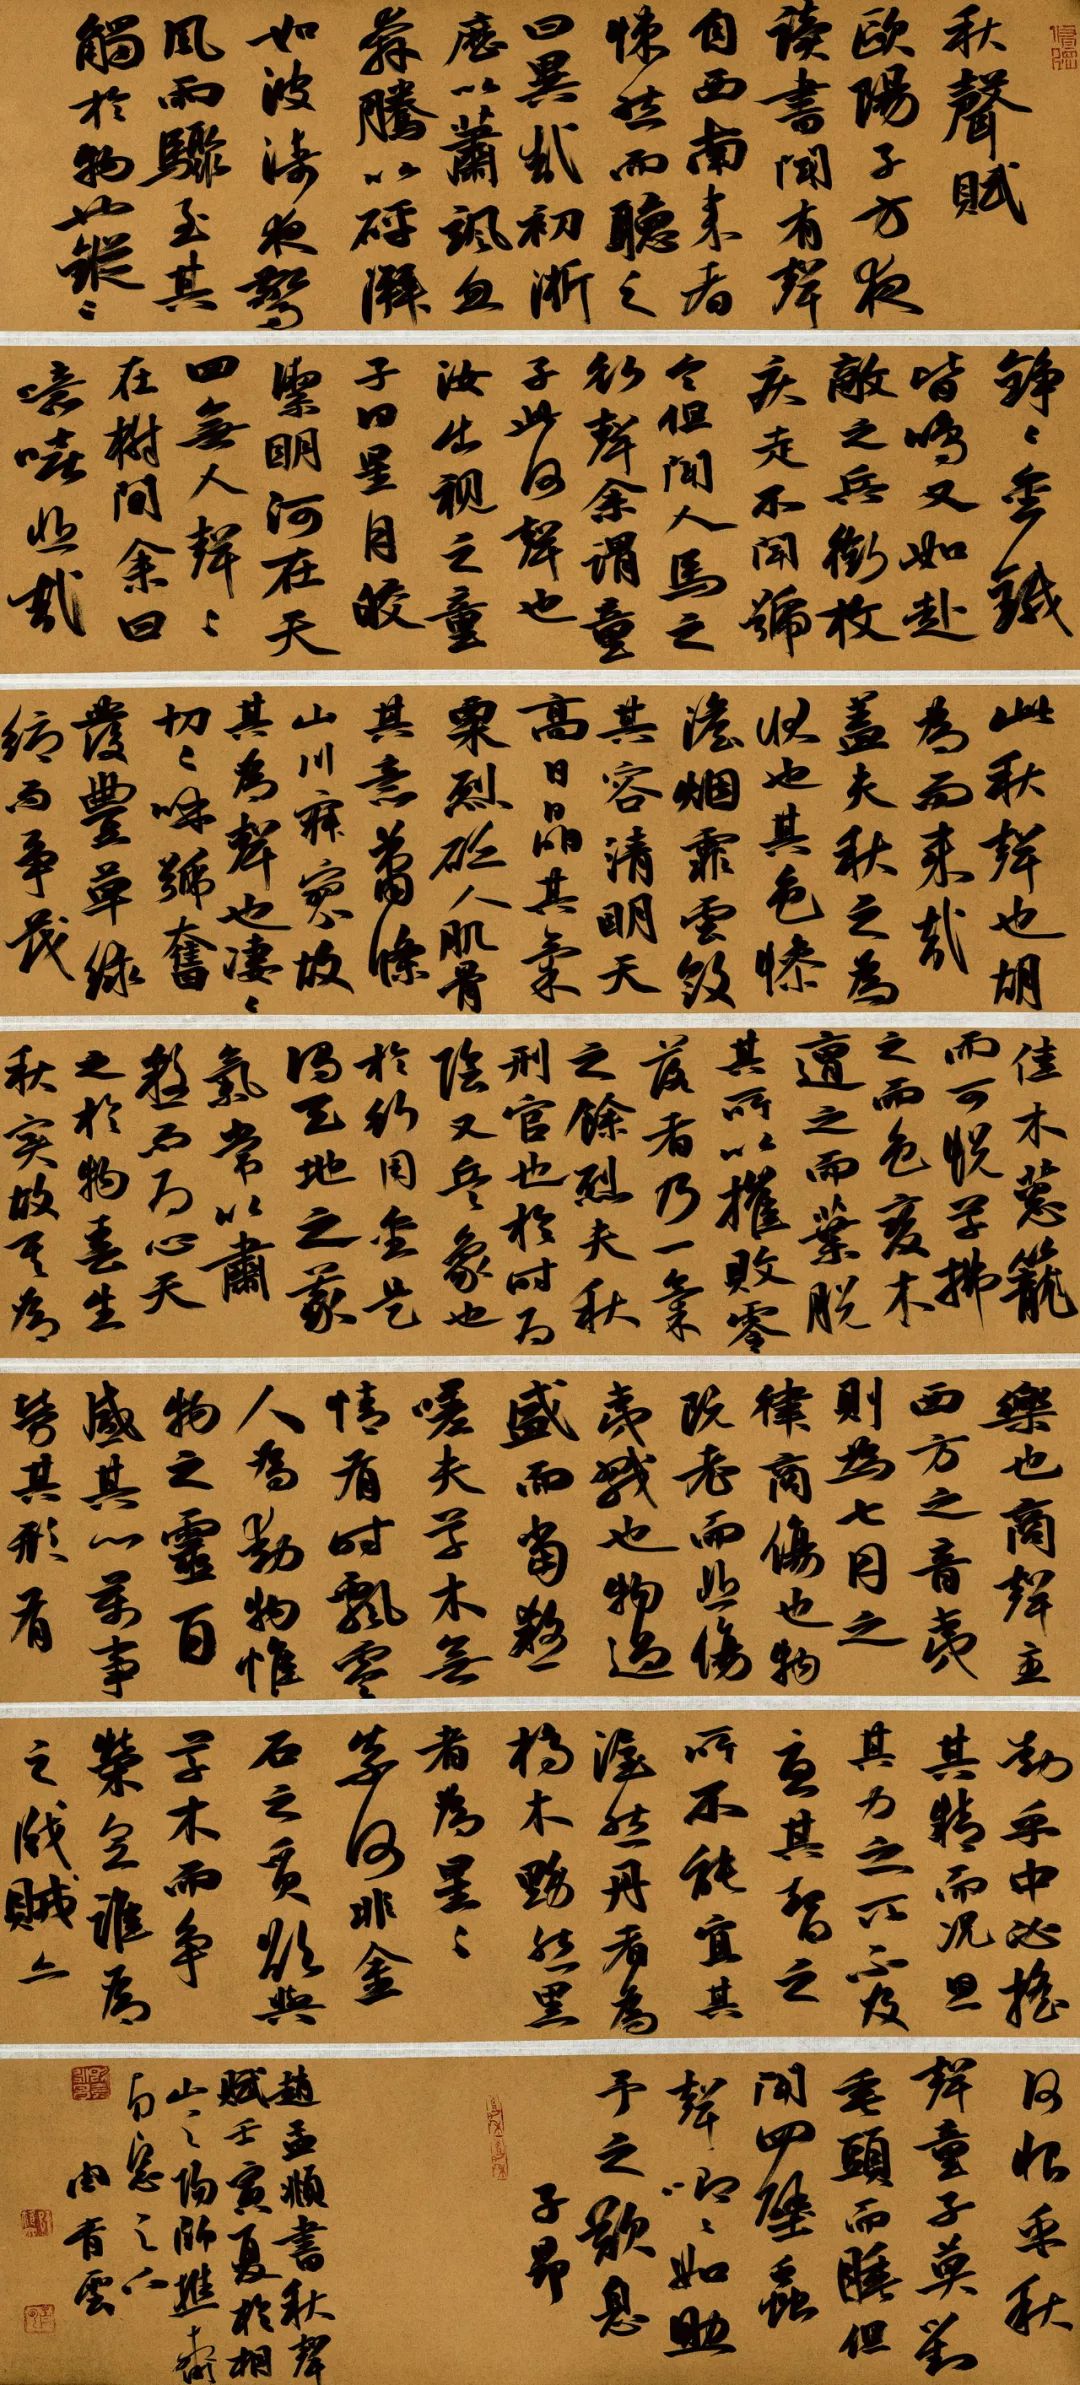 秋聲賦
歐陽子方夜
讀書聞有聲
自西南来者
悚然而聽之
曰異哉初淅
歷以蕭颯忽
奔騰以砰湃
如波濤夜驚
風雨驟至其
觸於物也鏦〻
錚〻金鐵
皆鳴又如赴
敵之兵銜枚
疾走不聞號
令但聞人馬之
行聲余謂童
子此何聲也
汝出視之童
子曰星月皎
潔明河在天
四無人聲〻
在樹間余曰
噫嘻悲哉
此秋聲也胡
為而来哉
蓋夫秋之為
狀也其色惨
澹烟霏雲斂
其容清明天
高日晶其氣
栗烈砭人肌骨
其意蕭條
山川寂寥故
其為聲也凄〻
切〻呼號奮
發豐草緑
縟而争茂
佳木葱籠
而可悦草拂
之而色變木
遭之而葉脱
其所以摧敗零
落者乃一氣
之餘烈夫秋
刑官也於時為
陰又兵象也
於行用金是
謂天地之義
氣常以肅
殺而為心天
之於物春生
秋實故其為
樂也商聲主
西方之音夷
則為七月之
律商傷也物
既老而悲傷
夷戮也物過
盛而當殺
嗟夫草木無
情有時飄零
人為動物惟
物之靈百
感其心萬事
勞其形有
動乎中必摇
其精而况思
其力之所不及
憂其智之
所不能宜其
渥然丹者為
槁木黟然黑
者為星〻
奈何非金
石之質欲與
草木而争
榮念誰為
之戕賊亦
何恨乎秋
聲童子莫對
垂頭而睡但
聞四壁蟲
聲唧〻如助
予之歎息
子昂
趙孟頫書秋聲
賦壬寅夏於相
山之陽師進齋
南窓之下
青雲